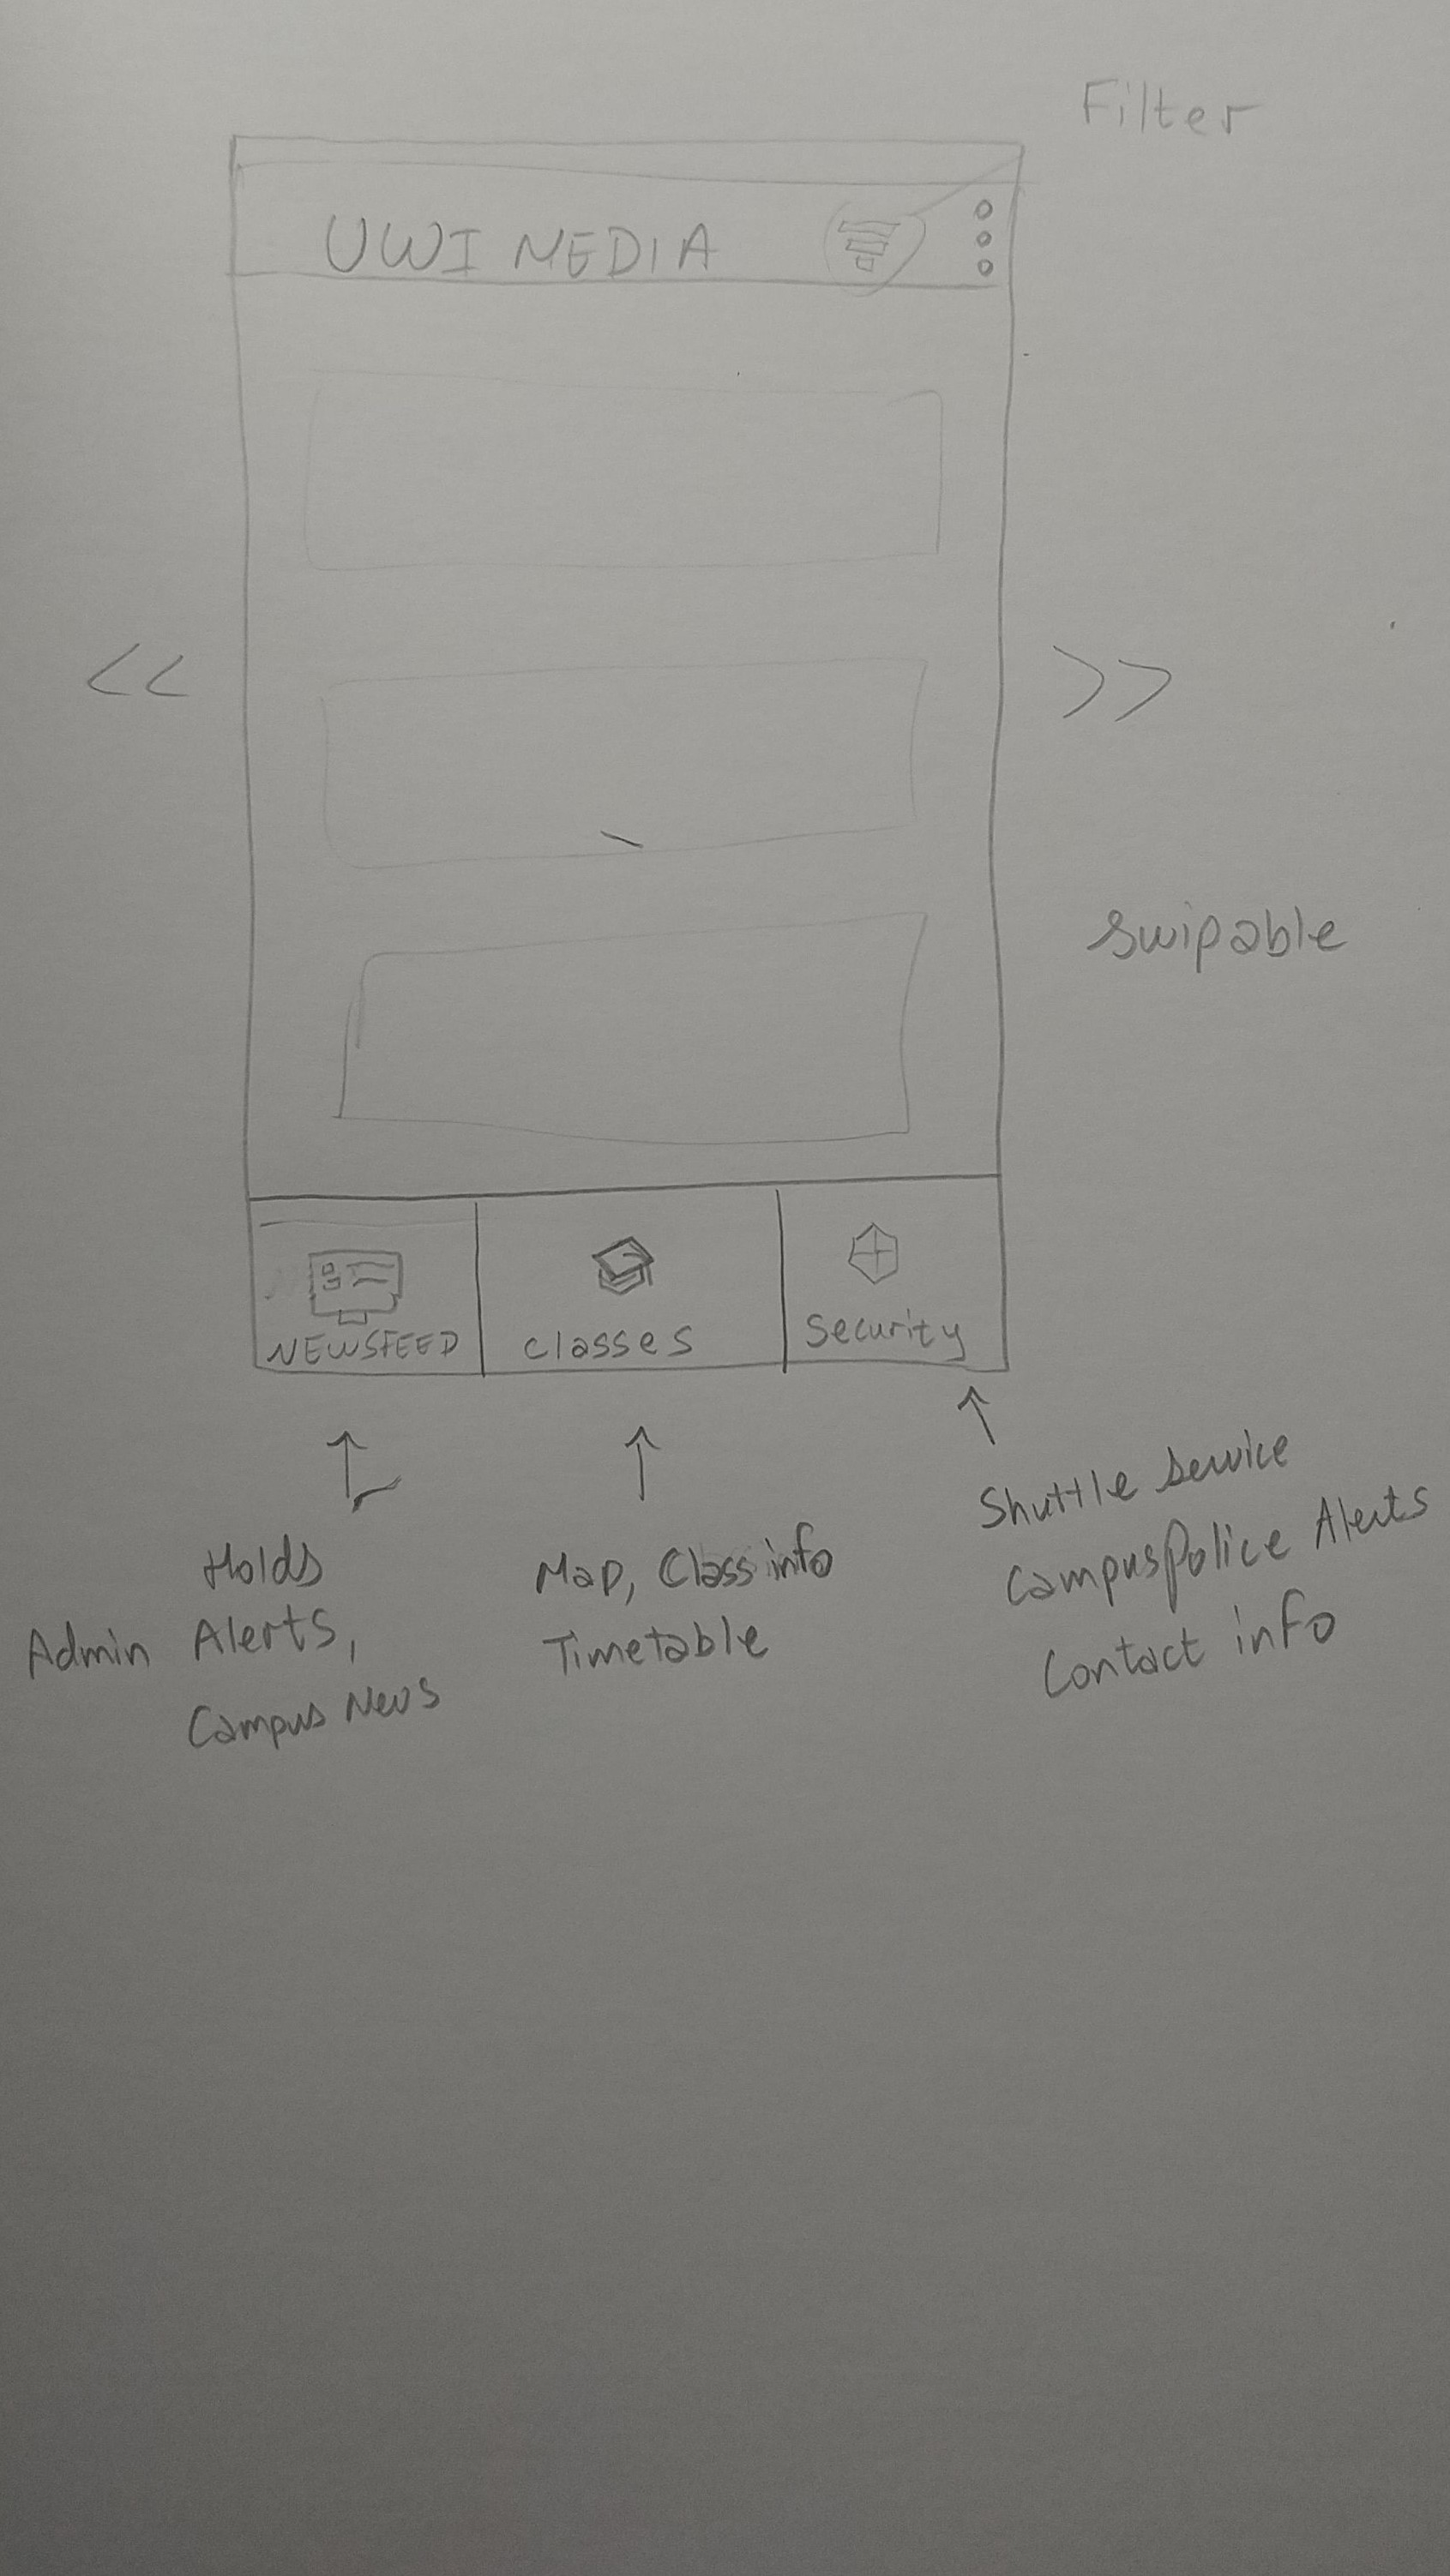 Filter
UWI MEDIA
<< >>
swipable
NEWSFEED
classes
Security
Holds
Admin Alerts,
Campus News
Map, Class info
Timetable
Shuttle Service
Campus Police Alerts
Contact info